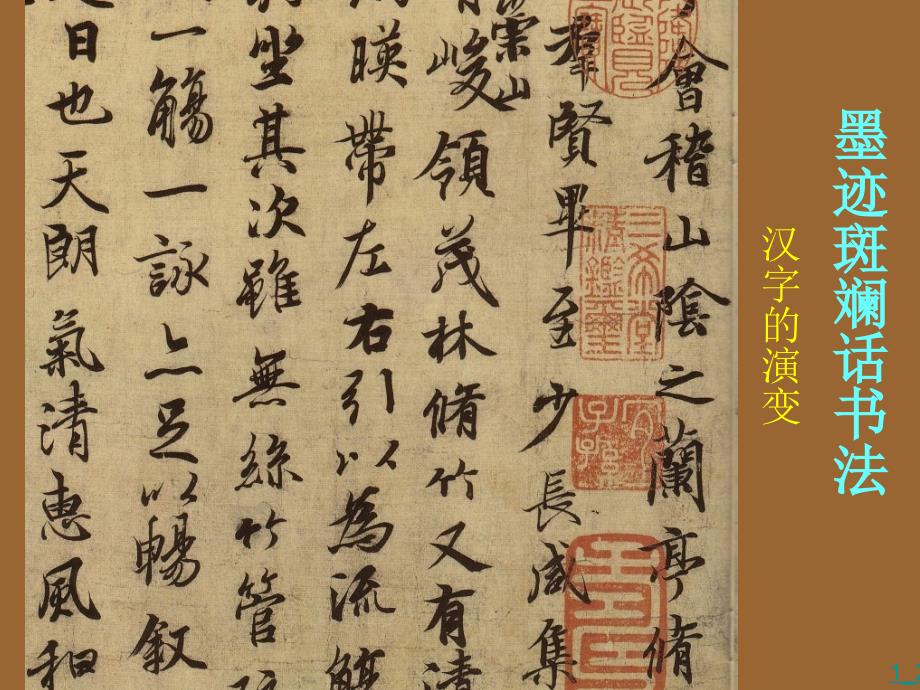 墨迹斑斓话书法
汉字的演变
會稽山陰之蘭亭脩
羣賢畢至少長咸集
崇山
峻領茂林脩竹又有清
暎帶左右引以為流觴
坐其次雖無絲竹管
一觴一詠亦足以暢叙
日也天朗氣清惠風和
三希堂
精鑑璽
宜
子孫
1